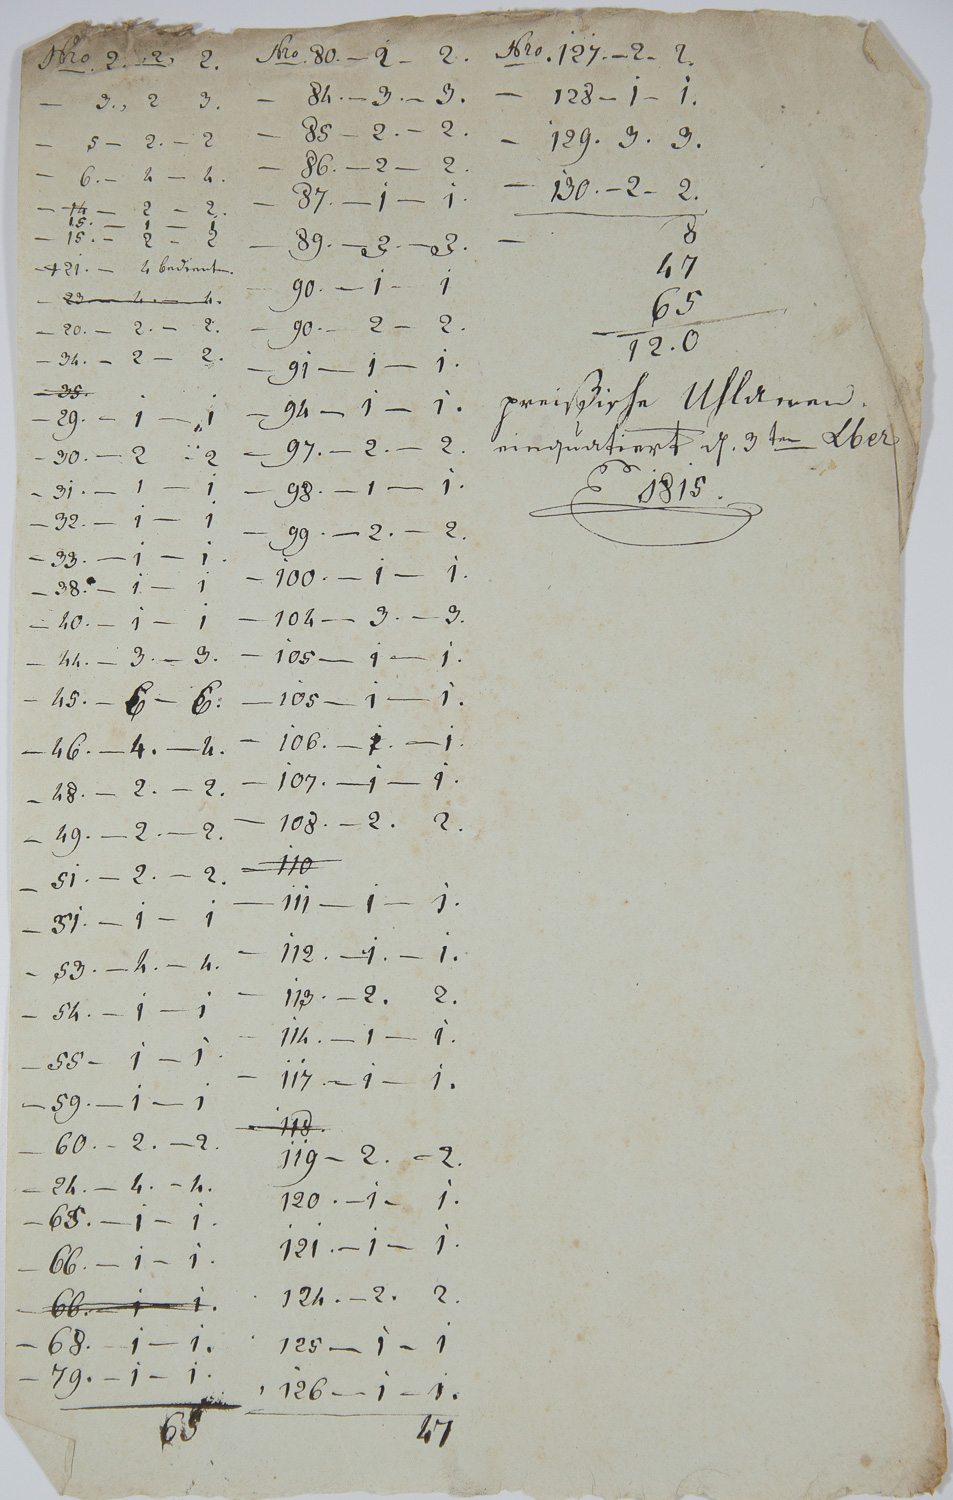 Nro. 2. 2. 2.
– 3., 2 3.
– 5 – 2. – 2
– 6. – 4 – 4.
– 14 – 2 – 2.
15. – 1 – 1
– 15. – 2 – 2
– 21. – 4 bedient.
– 23 – 4. – 4.
– 20. – 2. – 2.
– 34. – 2 – 2.
– 35.
– 29. – 1 – 1
– 30. – 2 – 2
– 31. – 1 – 1
– 32. – 1 – 1
– 33. – 1 – 1.
– 38. – 1 – 1
– 40. – 1 – 1
– 44. – 3. – 3.
– 45. – 6 – 6.
– 46. – 4. – 4.
– 48. – 2. – 2.
– 49. – 2. – 2.
– 51. – 2. – 2.
– 51. – 1 – 1
– 53. – 4. – 4.
– 54. – 1 – 1
– 55 – 1 – 1
– 59. – 1 – 1
– 60. – 2. – 2.
– 24. – 4. – 4.
– 65. – 1 – 1.
– 66. – 1 – 1.
– 66. – 1 1.
– 68. – 1 – 1.
– 79. – 1 – 1.
65
Nro. 80. – 2 – 2.
– 84. – 3. – 3.
– 85 – 2. – 2.
– 86. – 2 – 2.
– 87. – 1 – 1.
– 89. – 2. – 2.
– 90. – 1 – 1
– 90. – 2 – 2.
– 91 – 1 – 1.
– 94 – 1 – 1.
– 97. – 2. – 2.
– 98. – 1 – 1.
– 99. – 2. – 2.
– 100. – 1 – 1.
– 104 – 3. – 3.
– 105 – 1 – 1.
– 105 – 1 – 1.
– 106. – 1. – 1.
– 107. – 1 – 1.
– 108. – 2. 2.
– 110
– 111 – 1 – 1.
– 112. – 1. – 1.
– 113. – 2. 2.
– 114. – 1 – 1.
– 117. – 1 – 1.
– 118.
119 – 2. – 2.
120. – 1 – 1.
121. – 1 – 1.
124. – 2. 2.
125 – 1 – 1
126 – 1 – 1.
47
Nro. 127. – 2 – 2.
– 128 – 1 – 1.
– 129. 3. 3.
– 130. – 2 – 2.
– 8
47
65
12.0
preissische Uhlanen.
einquatiert d. 3ten
1815.